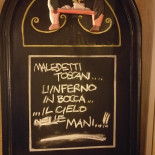 MALEDETTI
TOSCANI....
L'INFERNO
IN BOCCA...
...IL CIELO
NELLE
MANI...!!